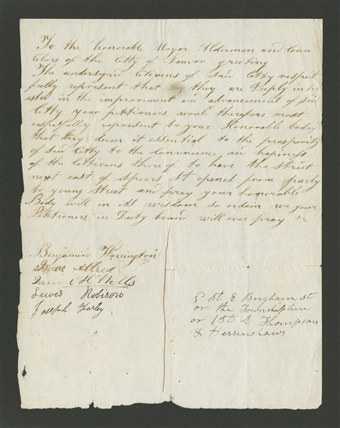 To the honorable Mayor Alderman and Coun
cilors of the City of Nauvoo greeting
The undersigned Citizens of said City respect
fully represent that they are Deeply inter
ested in the improvement and advancement of said
City your petitioners would therefore most
respectfully represent to your Honorable body
that they deem it essential to the prosperity
of said City to the convenience and happiness
of the Citizens thereof to have the street
next east of Spears St opened from
to young Street and pray your honorable
Body will in its wisdom so ordain we your
Petitioners in Duty bound will ever pray &c
Benjamin Warrington
Isaac Allred
Daniel H Wells
Lewis Robison
Joseph
St E Bingham St
or the Township line
or 1 St E Thompson
&